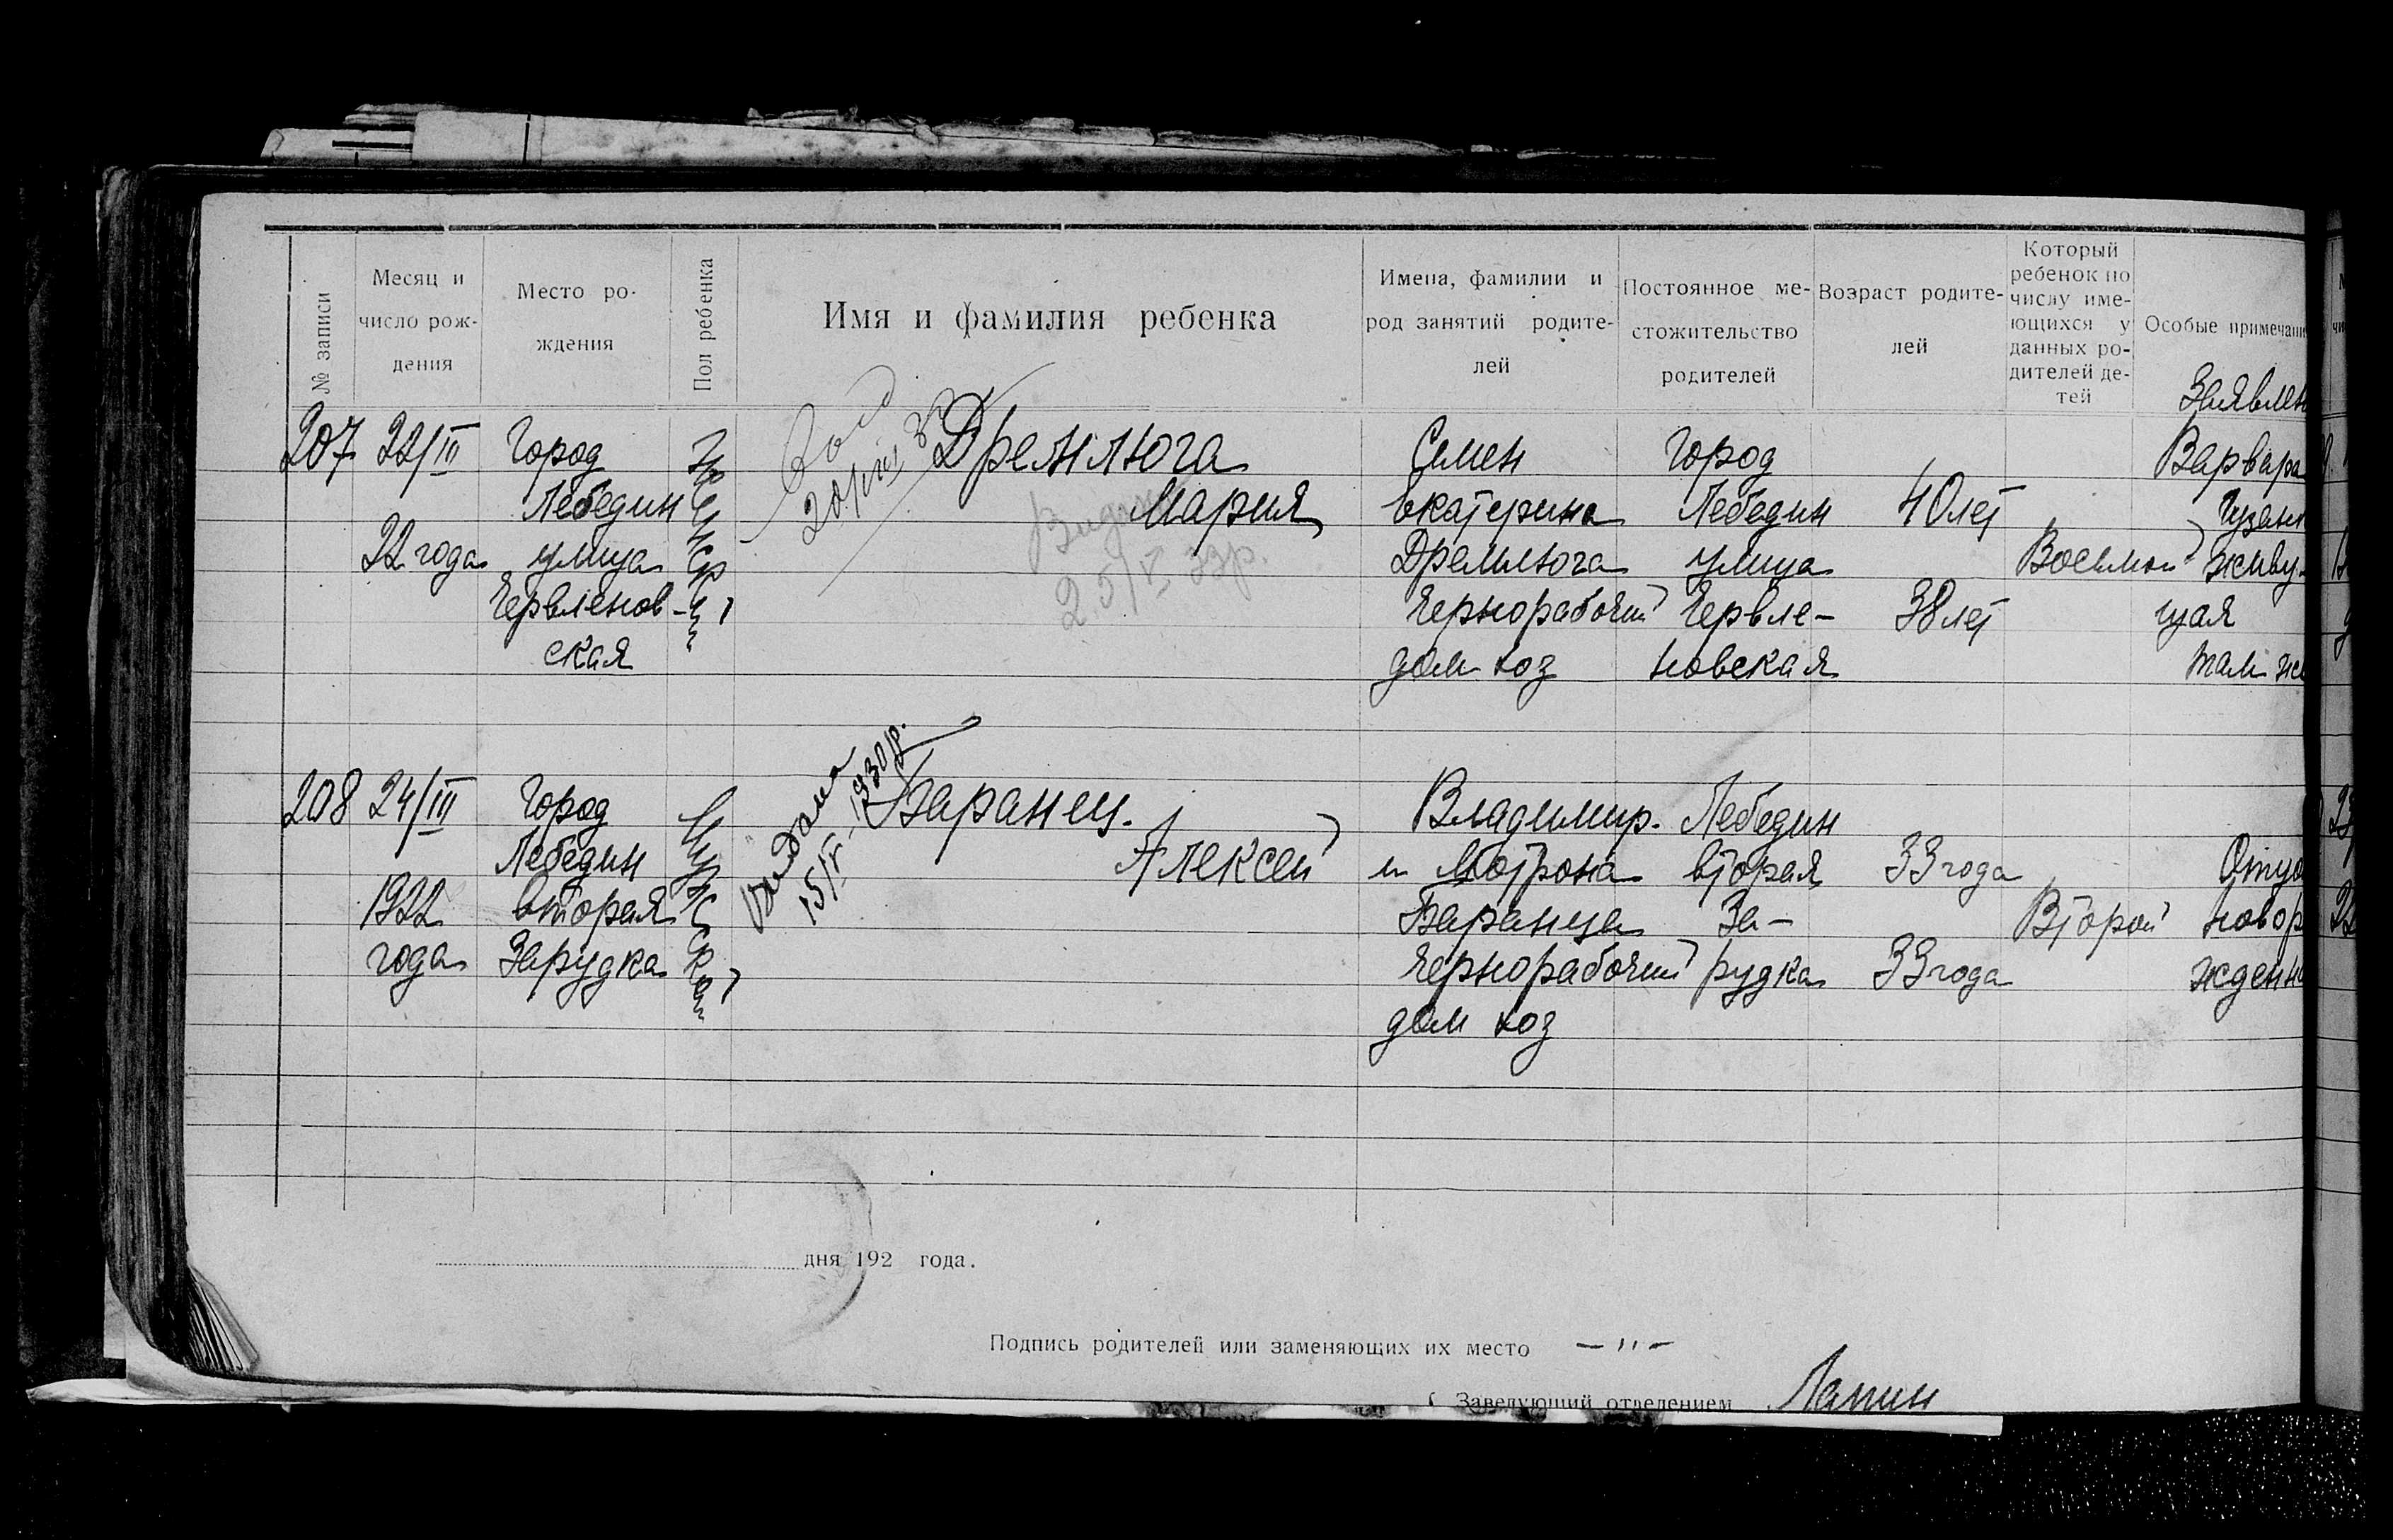 № записи
Месяц и
число рож-
дения
Место ро-
ждения
Пол ребенка
Имя и фамилия ребенка
Имена, фамилии и
род занятий родите-
лей
Постоянное ме-
стожительство
родителей
Возраст родите-
лей
Который
ребенок по
числу име-
ющихся у
данных ро-
дителей де-
тей
Особые примечани
207
22/III
22 года
Город
Лебедин
улица
Червленов-
ская
Женский
Дремлюга
Мария
25/V 33р.
Семен
Екатерина
Дремлюга
Чернорабочий
дом хоз
Город
Лебедин
улица
Червле-
новская
40 лет
38 лет
Восьмой
Заявлен
Варвара
живу-
щая
там же
208
24/III
1922
года
Город
Лебедин
вторая
Зарудка
Мужской
Видана
15/V-1930р.
Баранец.
Алексей
Владимир.
и Мотрона
Баранца
Чернорабочий
дом хоз
Лебедин
вторая
За-
рудка
33 года
33 года
Второй
новор
жденн
дня 192 года.
Подпись родителей или заменяющих их место -"-
Заведующий отделением Лапин